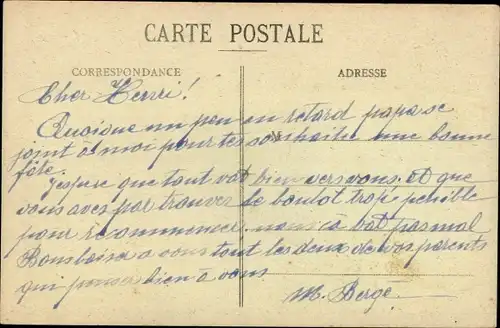 CARTE POSTALE
CORRESPONDANCE
ADRESSE
Cher Henri!
Quoique un peu en retard papa se
joint à moi pour te souhaiter une bonne
fête.
J'espère que tout vat bien vers vous. et que
vous avez par trouver le boulot trop pénible
pour recommencer. nous ca bat pas mal
Bons baisers a vous tout les deux de vos parents
qui pense bien à vous
M. Berge